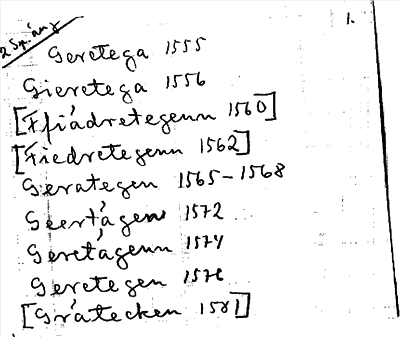 1.
Geretega 1555
Gieretega 1556
[Ffiädretegenn 1560]
[Fiedretegenn 1562]
Gerategen 1565-1568
Geertågen 1572
Geretågenn 1574
Geretegen 1576
[Gråtecken 1581]